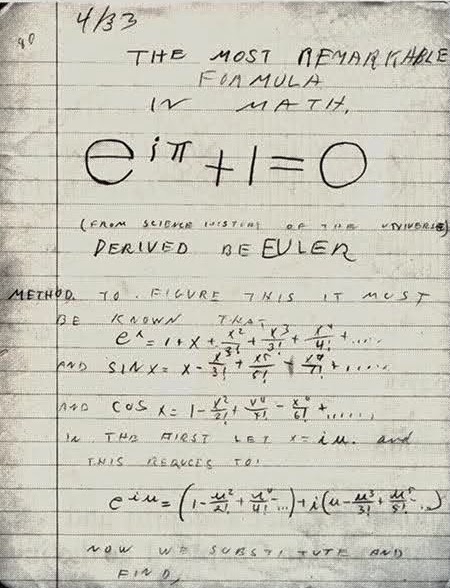 4/33
THE MOST REMARKABLE
FORMULA
IN MATH.
e^{iπ} + 1 = 0
(FROM SCIENCE HISTORY OF THE UNIVERSE)
DERIVED BE EULER
METHOD. TO FIGURE THIS IT MUST
BE KNOWN THAT
e^x = 1 + x + x^2/2! + x^3/3! + x^4/4! + ....
AND SIN x = x - x^3/3! + x^5/5! - x^7/7! + .....
AND COS x = 1 - x^2/2! + x^4/4! - x^6/6! + .....
IN THE FIRST LET x = iu. and
THIS REDUCES TO!
e^{iu} = (1 - u^2/2! + u^4/4! - ...) + i(u - u^3/3! + u^5/5! - ...)
NOW WE SUBSTITUTE AND
FIND,